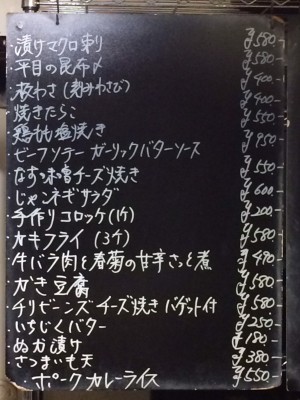 ・漬けマグロ刺 ¥580-
・平目の昆布〆 ¥580-
・板わさ(刻みわさび) ¥400-
・焼きたらこ ¥400-
・鶏もも塩焼き ¥550-
・ビーフソテー ガーリックバターソース ¥950-
・なす味噌チーズ焼き ¥550-
・じゃこネギサラダ ¥600-
・手作りコロッケ(1ケ) ¥200-
・カキフライ(3ケ) ¥580-
・牛バラ肉と春菊の甘辛さっと煮 ¥490-
・かき豆腐 ¥580-
・チリビーンズチーズ焼き バゲット付 ¥580-
・いちじくバター ¥250-
・ぬか漬け ¥180-
・さつまいも天 ¥380-
・ポークカレーライス ¥550-